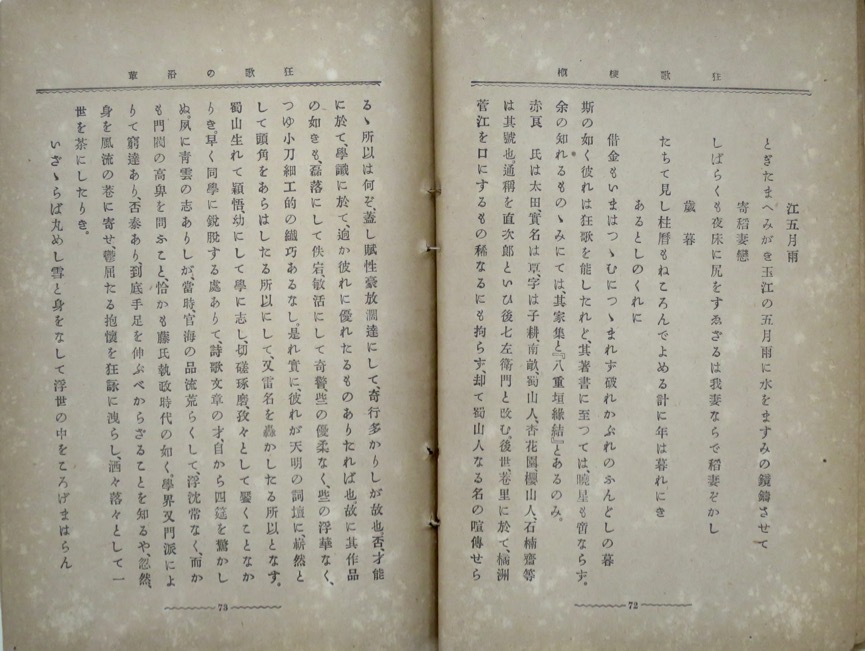 狂歌梗槪
江五月雨
とぎたまへみがき玉江の五月雨に水をますみの鏡鑄させて
寄稻妻戀
しばらくも夜床に尻をすゑざるは我妻ならで稻妻ぞかし
歲暮
たちて見し柱曆もねころんでよめる計に年は暮れにき
あるとしのくれに
借金もいまはつゝむにつゝまれず破れかぶれのふんどしの暮
斯の如く彼れは狂歌を能したれど、其著書に至つては、曉星も啻ならず。
余の知れるものゝみにては、其家集と『八重垣緣結』とあるのみ。
赤良 氏は太田實名は覃、字は子耕、南畝、蜀山人、杏花園、櫻山人、石楠齋等
は其號也通稱を直次郞といひ後七左衞門と改む。後世、巷里に於て、橘洲
菅江を口にするもの稀なるにも拘らず、却て蜀山人なる名の喧傳せら
72
狂歌の沿革
るゝ所以は何ぞ、蓋し賦性豪放濶達にして、奇行多かりしが故也、否、才能
に於て、學識に於て、逈か彼れに優れたるものありたれば也、故に其作品
の如きも、磊落にして佚宕、敏活にして奇警、些の優柔なく、些の浮華なく、
つゆ小刀細工的の纎巧あるなし。是れ實に、彼れが天明の詞壇に、嶄然と
して頭角をあらはしたる所以にして、又雷名を轟かしたる所以となす。
蜀山生れて穎悟、幼にして學に志し、切磋琢磨、孜々として饜くことなか
りき。早く同學に銳脫する處ありて、詩歌文章の才、自から四筵を驚かし
ぬ。夙に靑雲の志ありしが、當時、官海の品流荒らくして、浮沈常なく、而か
も門閥の高卑を問ふこと、恰かも藤氏執政時代の如く。學界又門派によ
りて窮達あり、否泰あり、到底手足を伸ぶべからざることを知るや、忽然、
身を風流の巷に寄せ、鬱屈たる抱懷を狂詠に洩らし、洒々落々として一
世を茶にしたりき。
いざゝらば丸めし雪と身をなして浮世の中をころげまはらん
73